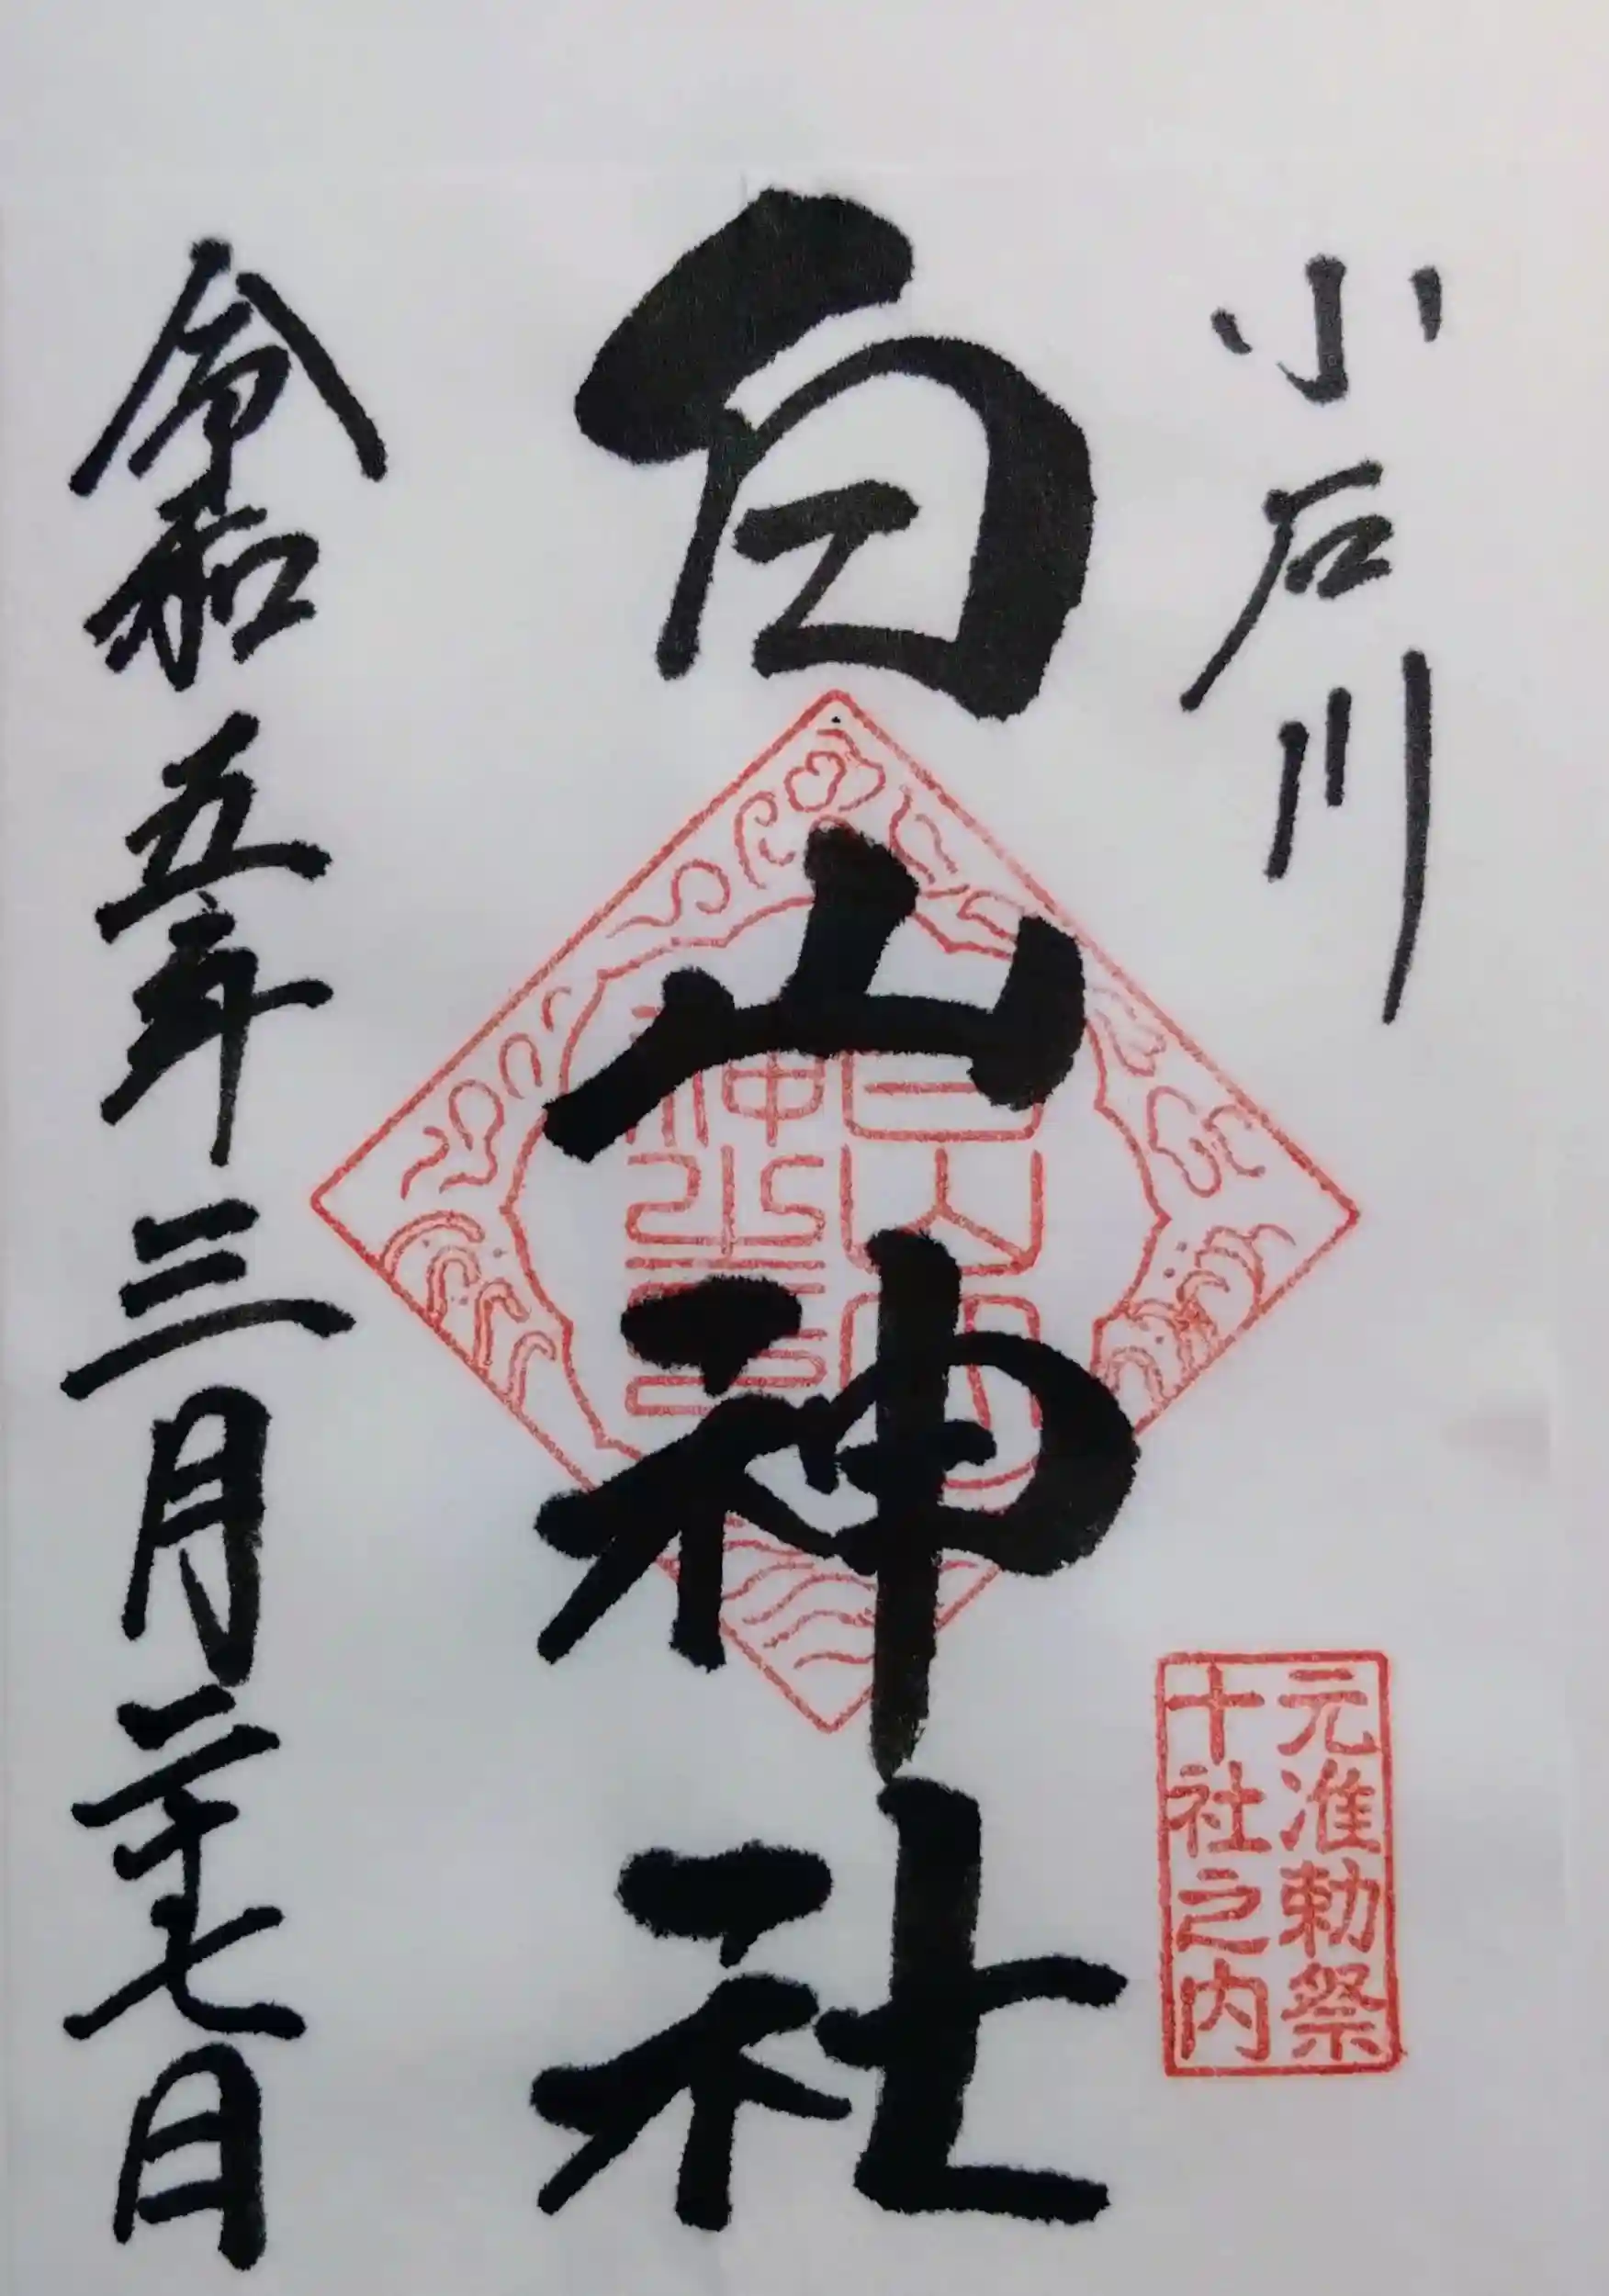 小石川
白山神社
令和五年三月二十七日
元准勅祭
十社之内